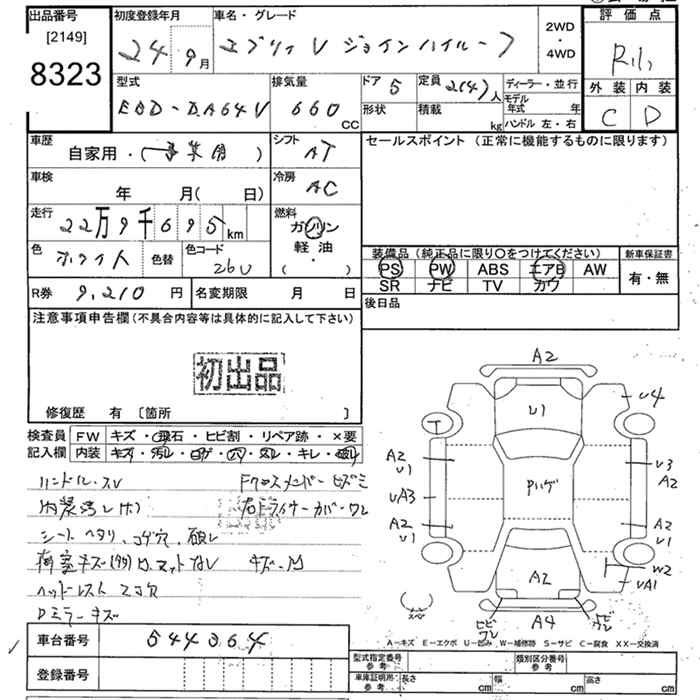 出品番号
[2149]
8323
初度登録年月
24 9月
車名・グレード
エブリィ V ジョインハイルーフ
2WD
・
4WD
評価点
外装 内装
C D
型式
EBD-DA64V
排気量
660
CC
ドア 5
形状
定員 2(4)人
積載
kg
ディーラー・並行
モデル年式 年
ハンドル 左・右
車歴
自家用・(事業用)
シフト
AT
車検
年 月( 日)
冷房
AC
走行
22万9千695km
燃料
ガソリン
軽油
( )
色
ホワイト
色替
色コード
26U
R券 9,210円
名変期限 月 日
セールスポイント (正常に機能するものに限ります)
装備品 (純正品に限り○をつけてください)
PS PW ABS エアB AW
SR ナビ TV カワ
新車保証書
有・無
後日品
注意事項申告欄 (不具合内容等は具体的に記入して下さい)
初出品
修復歴 有 〔箇所 〕
検査員
記入欄
FW キズ・飛石・ヒビ割・リペア跡・×要
内装 キズ・汚レ・コゲ・穴・スレ・キレ・破レ
ハンドル・スレ
Fクロスメンバーヒズミ
内装汚レ
シートヘタリ、コゲ穴、破レ
荷室キズ
マットなし
キズ・凹
ヘッドレスト 2コ欠
Dミラーキズ
A2
U1
U4
T
A2
U1
U3
A2
UA3
ハゲ
A2
U1
A2
U1
A2
W2
UA1
スペア
ヒビ
ワレ
A4
A-キズ E-エクボ U-凹み W-補修跡 S-サビ C-腐食 XX-交換済
車台番号 544364
登録番号
型式指定番号
参考
類別区分番号
参考
車庫証明所
参考
長さ cm
幅 cm
高さ cm